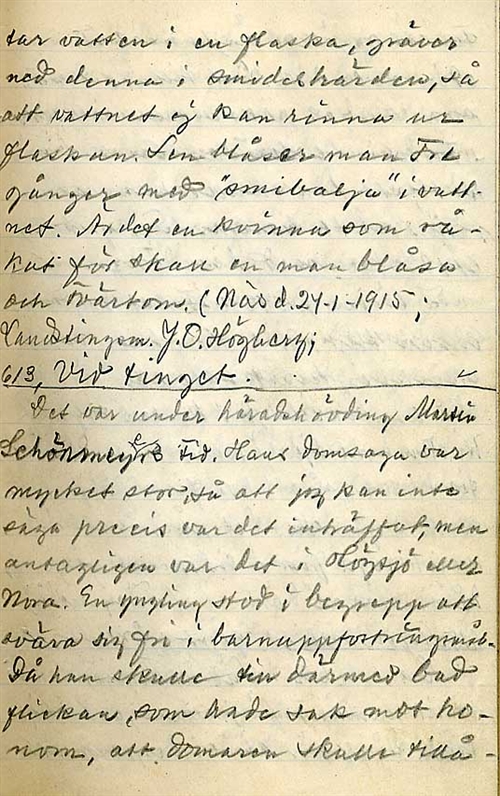 tar vatten i en flaska, gräver
ned denna i smideshärden, så
att vattnet ej kan rinna ur
flaskan. Sen blåser man tre
gånger med "smibalja" i vatt-
net. Är det en kvinna som rå-
kat för skall en man blåsa
och tvärtom. (Näs d. 24-1-1915;
Landstingsm. J. O. Högberg;
613, Vid tinget.
Det var under häradshövding Martin
Schönmeyrs tid. Hans domsaga var
mycket stor, så att jag kan inte
säga precis var det inträffat, men
antagligen var det i Högsjö eller
Nora. En yngling stod i begrepp att
svära sig fri i barnuppfostringsmål.
Då han skulle till därmed bad
flickan, som hade sak mot ho-
nom, att domaren skulle tillå-